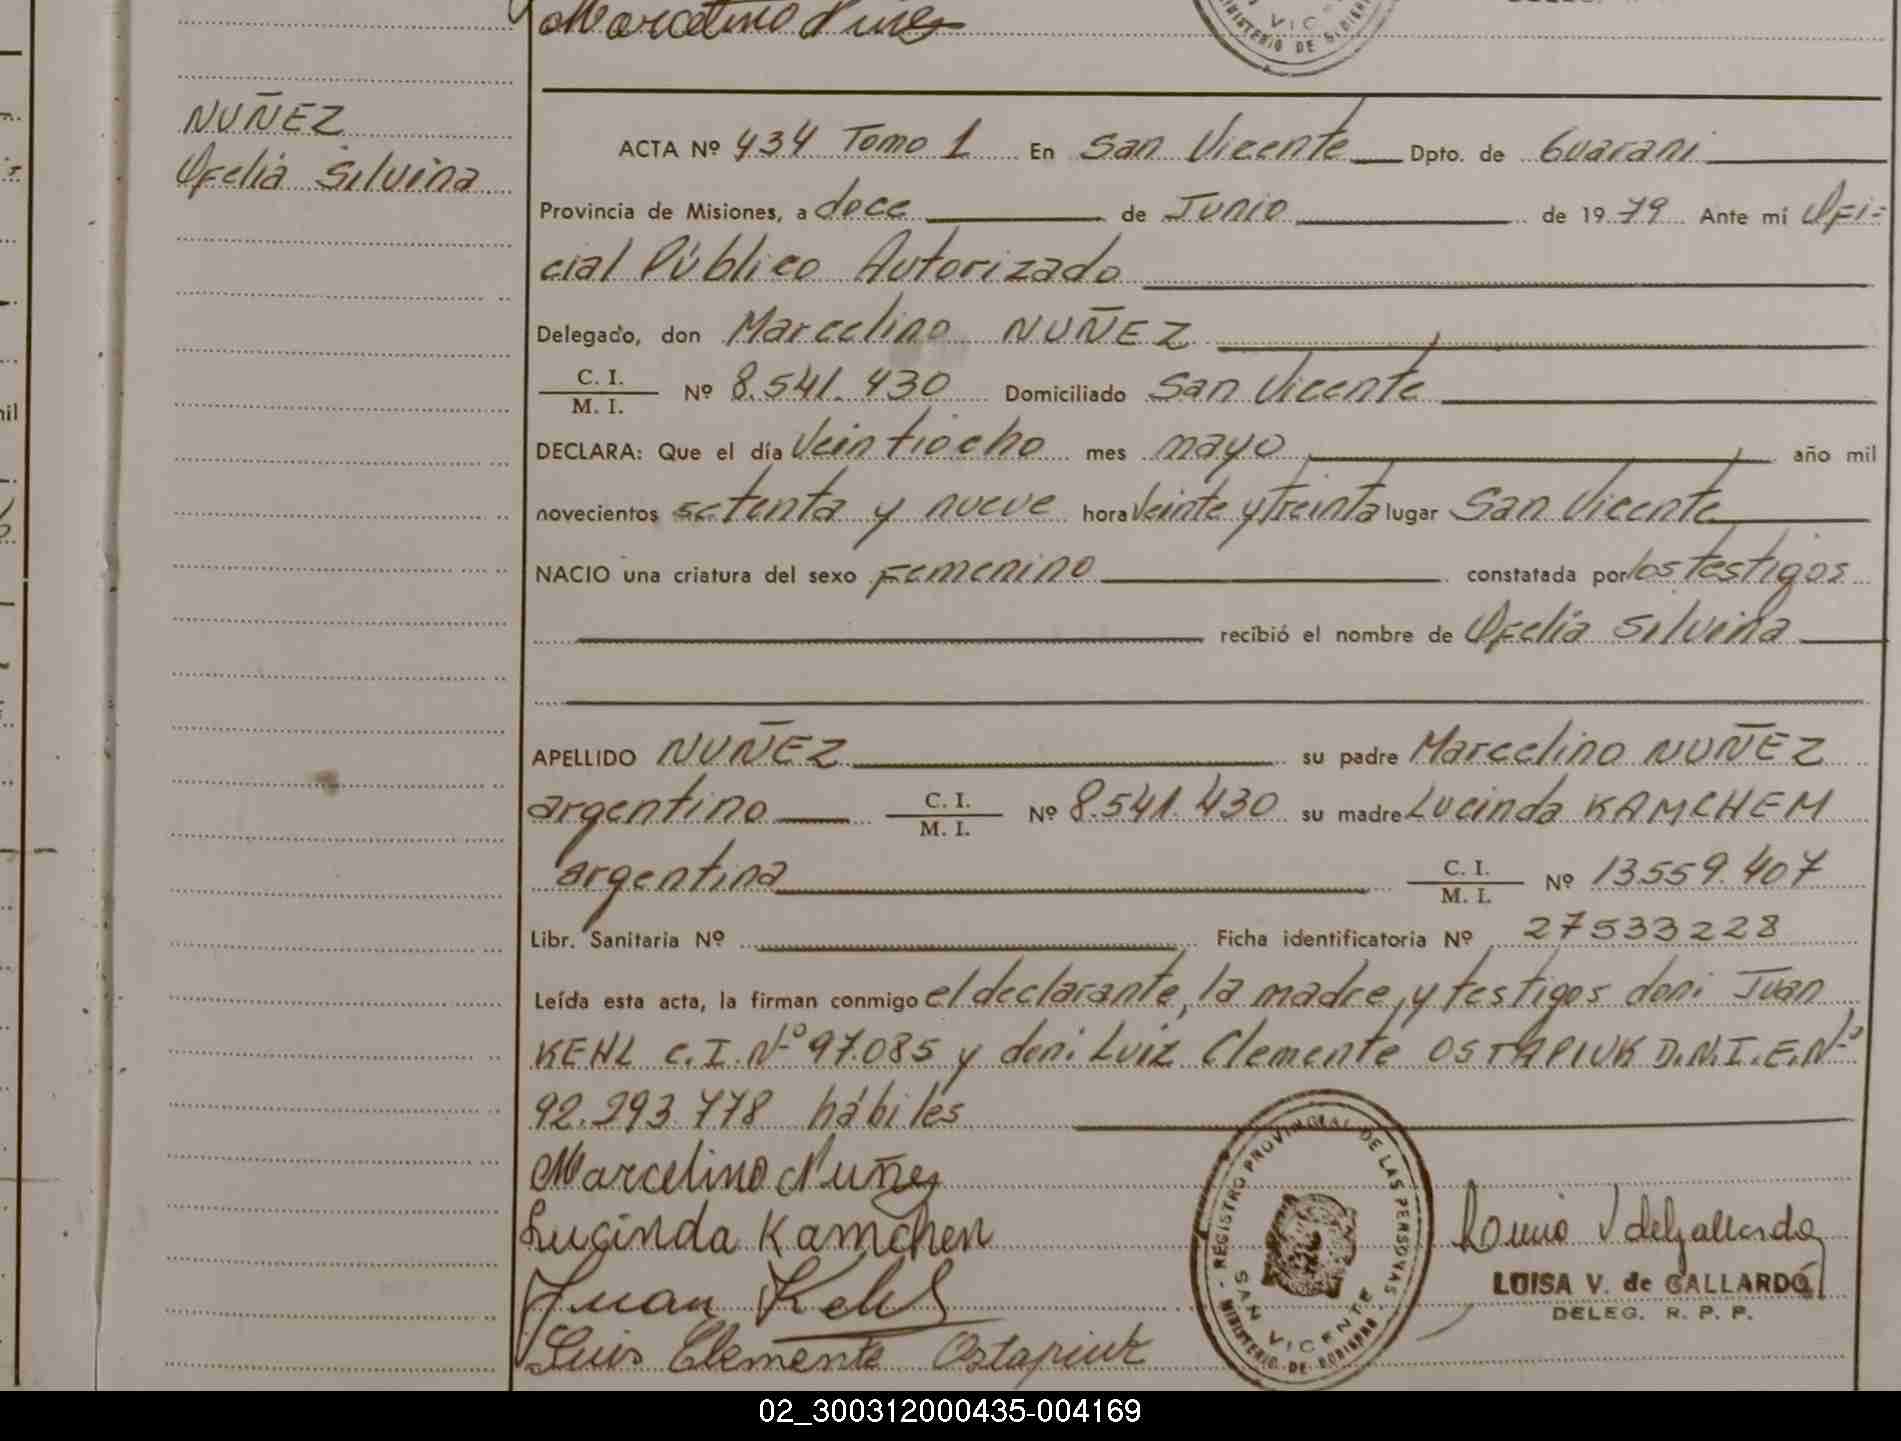 Marcelino Nuñez
NUÑEZ
Ofelia Silvina
ACTA Nº 434 Tomo 1 En San Vicente Dpto. de Guarani
Provincia de Misiones, a doce de Junio de 1979 Ante mí Ofi-
cial Público Autorizado
Delegado, don Marcelino NUÑEZ
C. I.
M. I. Nº 8.541.430 Domiciliado San Vicente
DECLARA: Que el día Veintiocho mes mayo año mil
novecientos setenta y nueve hora Veinte y treinta lugar San Vicente
NACIO una criatura del sexo Femenino constatada por los testigos
recibió el nombre de Ofelia Silvina
APELLIDO NUÑEZ su padre Marcelino NUÑEZ
argentino C. I. M. I. Nº 8.541.430 su madre Lucinda KAMCHEM
argentina C. I. M. I. Nº 13.559.407
Libr. Sanitaria Nº Ficha identificatoria Nº 27533228
Leída esta acta, la firman conmigo el declarante, la madre, y testigos don: Juan
KEHL C.I.Nº 97.085 y don: Luiz Clemente OSTAPIUK D.N.I.E.Nº
92.293.778 hábiles
Marcelino Nuñez
Lucinda Kamchen
Juan Kehl
Luis Clemente Ostapiuk
REGISTRO PROVINCIAL DE LAS PERSONAS
SAN VICENTE
MINISTERIO DE GOBIERNO
LUISA V. de GALLARDO
DELEG. R. P. P.
02_300312000435-004169